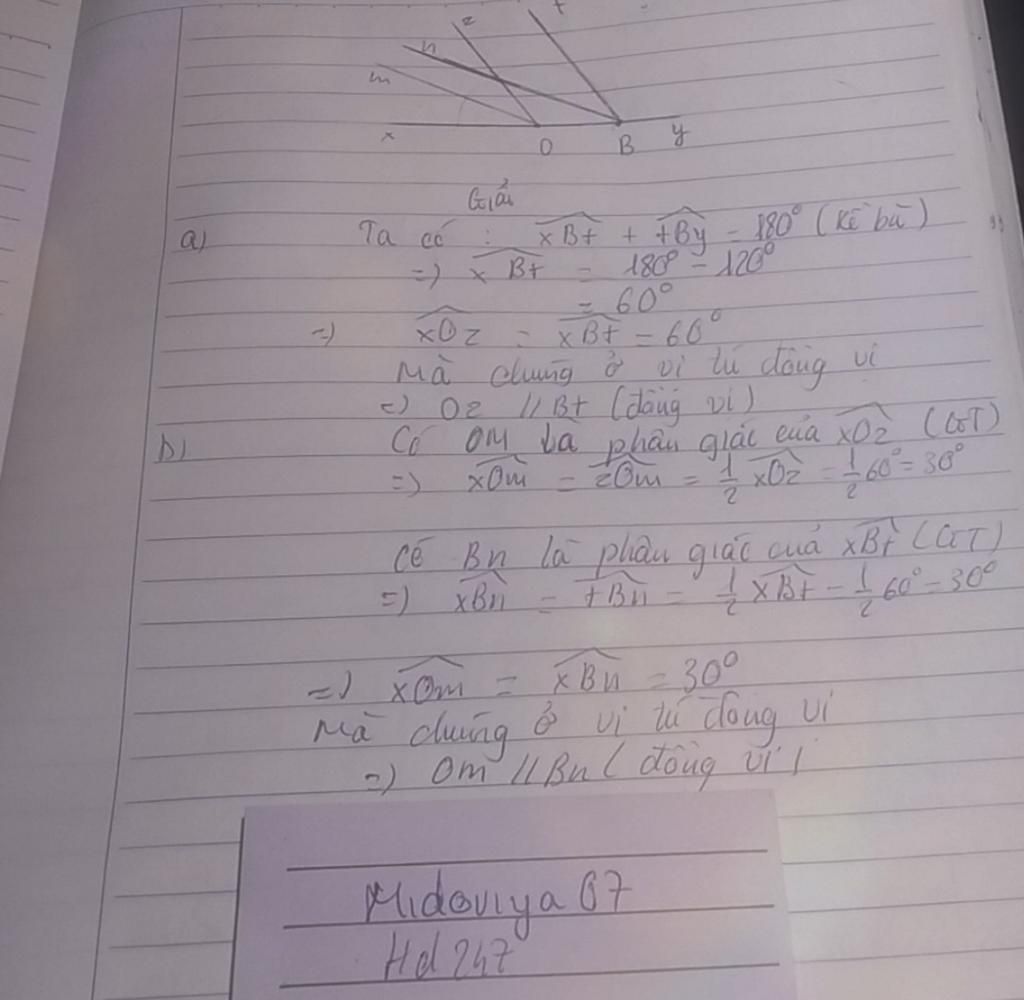 z t
n
m
x O B y
Giải
a) Ta có : xBt + tBy = 180° (kề bù)
=) xBt = 180° - 120°
= 60°
=) xOz = xBt = 60°
Mà chúng ở vị trí đồng vị
=) Oz // Bt (đồng vị)
b) Có Om là phân giác của xOz (GT)
=) xOm = zOm = 1/2 xOz = 1/2 60° = 30°
Có Bn là phân giác của xBt (GT)
=) xBn = tBn = 1/2 xBt = 1/2 60° = 30°
=) xOm = xBn = 30°
Mà chúng ở vị trí đồng vị
=) Om // Bn (đồng vị)
Midoviya 07
Hd 247